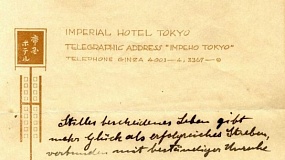 IMPERIAL HOTEL TOKYO
TELEGRAPHIC ADDRESS "IMPEHO TOKYO"
TELEPHONE GINZA
帝国ホテル
Stilles bescheidenes Leben gibt
mehr Glück als erfolgreiches Streben,
verbunden mit beständiger Unruhe